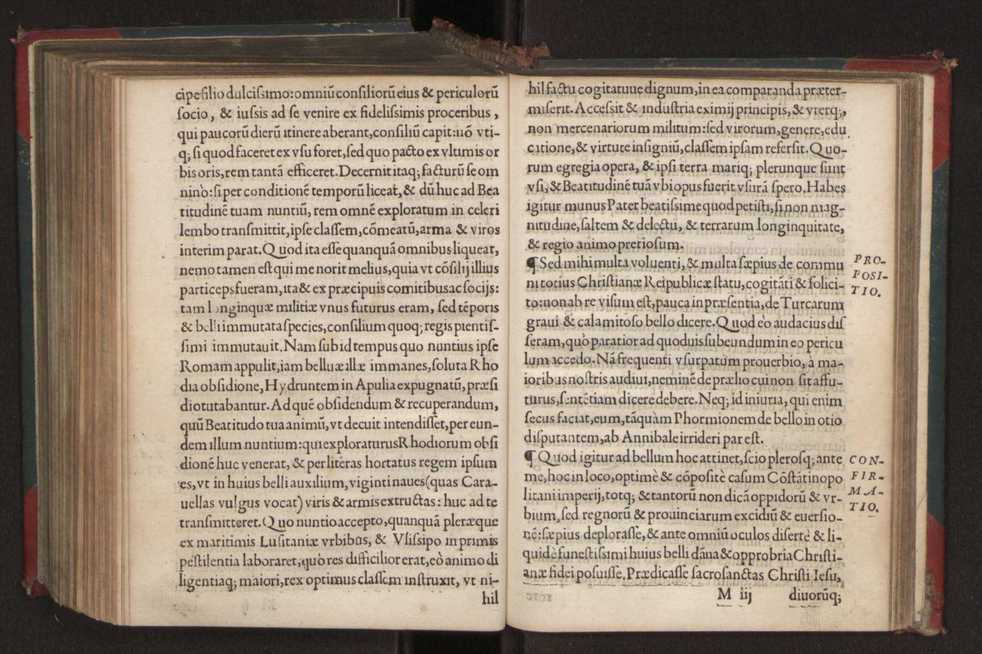 cipe filio dulcissimo: omniũ consiliorũ eius & periculorũ
socio, & iussis ad se venire ex fidelissimis proceribus,
qui paucorũ dierũ itinere aberant, consiliũ capit: nõ vti-
q; si quod faceret ex vsu foret, sed quo pacto ex vltimis or
bis oris, rem tantã efficeret. Decernit itaq; facturũ se om
nino: si per conditionẽ temporũ liceat, & dũ huc ad Bea
titudinẽ tuam nuntiũ, rem omnẽ exploratum in celeri
lembo transmittit, ipse classem, cõmeatũ, arma & viros
interim parat. Quod ita esse quanquã omnibus liqueat,
nemo tamen est qui me norit melius, quia vt cõsilij illius
particeps fueram, ita & ex præcipuis comitibus ac socijs:
tam longinquæ militiæ vnus futurus eram, sed tẽporis
& belli immutata species, consilium quoq; regis pientis-
simi immutauit. Nam sub id tempus quo nuntius ipse
Romam appulit, iam belluæ illæ immanes, soluta Rho
dia obsidione, Hydruntem in Apulia expugnatũ, præsi
dio tutabantur. Ad quẽ obsidendum & recuperandum,
quũ Beatitudo tua animũ, vt decuit intendisset, per eun-
dem illum nuntium: qui exploraturus Rhodiorum obsi
dionẽ huc venerat, & per literas hortatus regem ipsum
es, vt in huius belli auxilium, viginti naues (quas Cara-
uellas vulgus vocat) viris & armis extructas: huc ad te
transmitteret. Quo nuntio accepto, quanquã pleræque
ex maritimis Lusitaniæ vrbibus, & Vlissipo in primis
pestilentia laboraret, quò res difficilior erat, eò animo di
ligentiaq; maiori, rex optimus classem instruxit, vt ni-
hil
hil factu cogitatuue dignum, in ea comparanda præter-
miserit. Accessit & industria eximij principis, & vterq;,
non mercenariorum militum: sed virorum, genere, edu
catione, & virtute insigniũ, classem ipsam refersit. Quo-
rum egregia opera, & ipsi terra mariq; plerunque sunt
vsi, & Beatitudinẽ tuã vbi opus fuerit vsurã spero. Habes
igitur munus Pater beatissime quod petisti, si non mag-
nitudine, saltem & delectu, & terrarum longinquitate,
& regio animo pretiosum.
¶ Sed mihi multa voluenti, & multa sæpius de commu
ni totius Christianæ Reipublicæ statu, cogitãti & solici-
to: non ab re visum est, pauca in præsentia, de Turcarum
graui & calamitoso bello dicere. Quod eò audacius dis
seram, quò paratior ad quoduis subeundum in eo pericu
lum accedo. Nã frequenti vsurpatum prouerbio, à ma-
ioribus nostris audiui, neminẽ de prælio cui non sit affu-
turus, sentẽtiam dicere debere. Neq; id iniuria, qui enim
secus faciat, eum, tãquàm Phormionem de bello in otio
disputantem, ab Annibale irrideri par est.
¶ Quod igitur ad bellum hoc attinet, scio plerosq; ante
me, hoc in loco, optimè & cõpositè casum Cõstãtinopo
litani imperij, totq; & tantorũ non dicã oppidorũ & vr-
bium, sed regnorũ & prouinciarum excidiũ & euersio-
nẽ: sæpius deplorasse, & ante omniũ oculos disertè & li-
quidè funestissimi huius belli dãna & opprobria Christi-
anæ fidei posuisse. Prædicasse sacrosanctas Christi Iesu,
M iij diuorũq;
PRO-
POSI-
TIO.
CON-
FIR-
MA-
TIO.